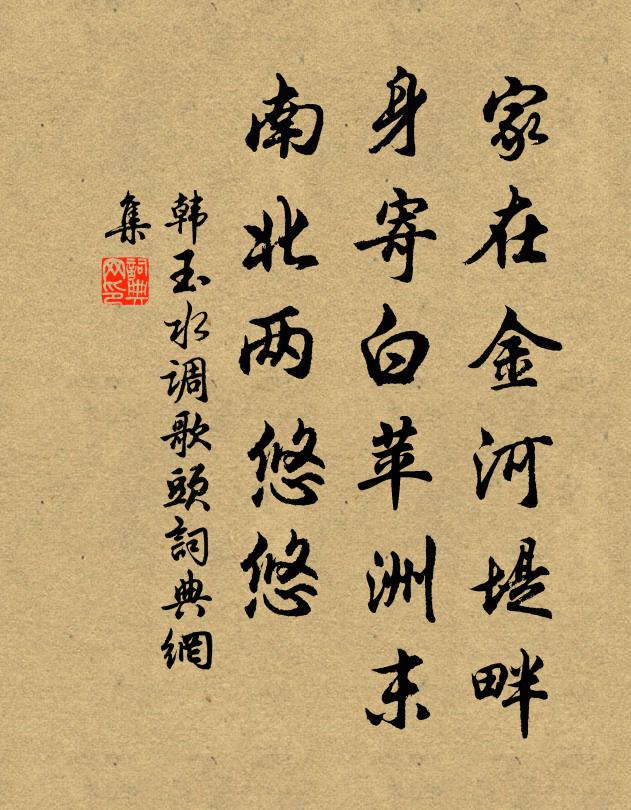 家在金河堤畔
身寄白苹洲末
南北两悠悠
韩玉水调歌头詞典網
集
詞典
网印